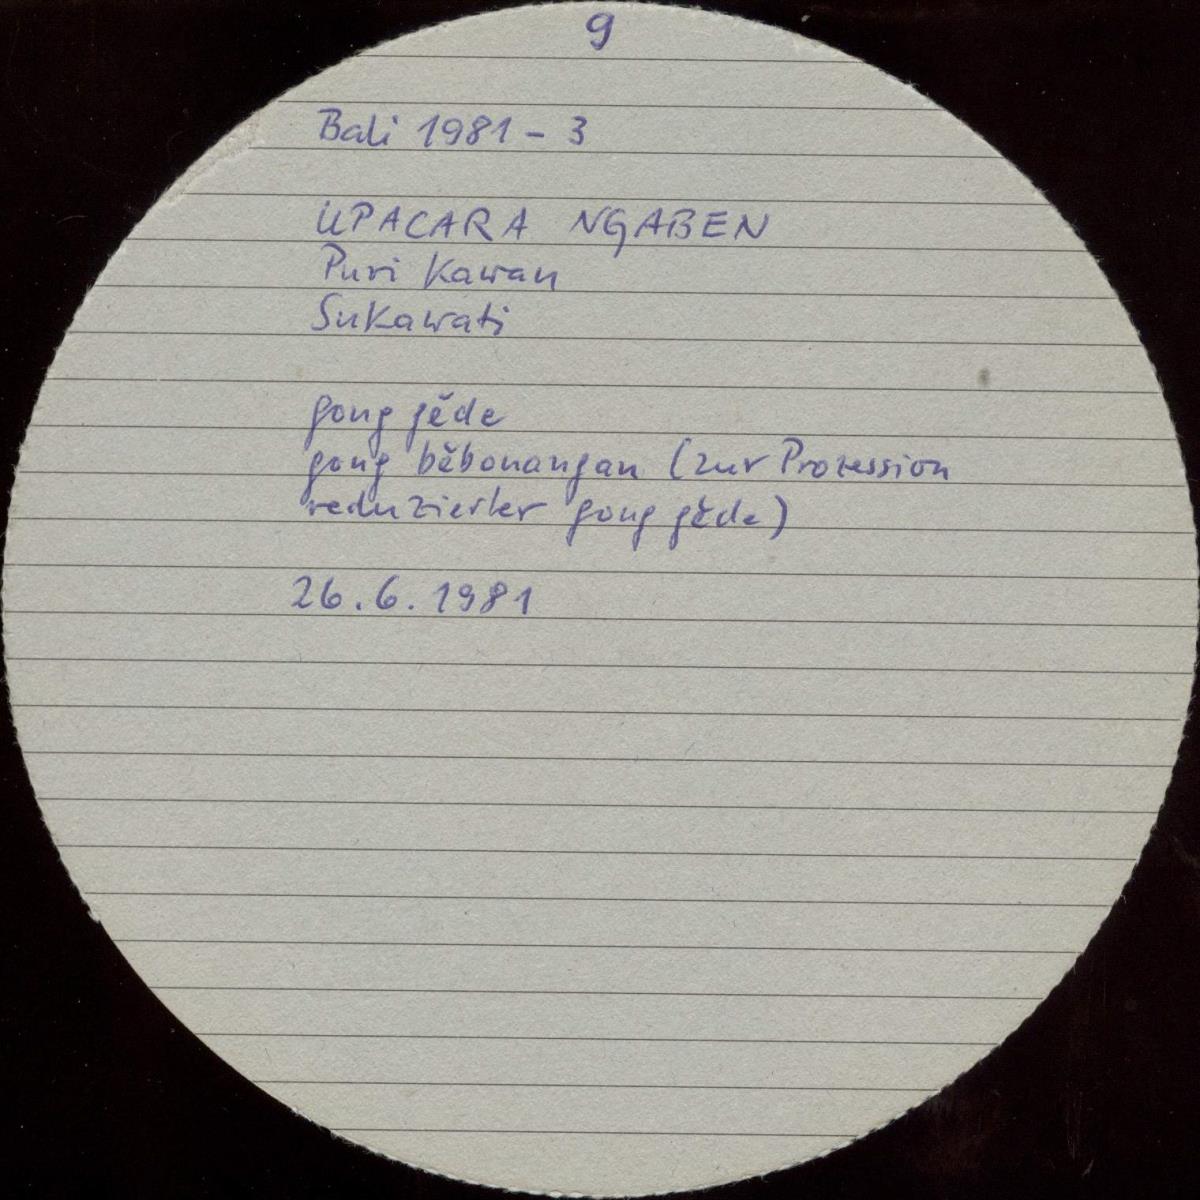 9
Bali 1981 - 3
UPACARA NGABEN
Puri Kawan
Sukawati
gong gĕde
gong bĕbonangan (zur Prozession
reduzierter gong gĕde)
26.6.1981